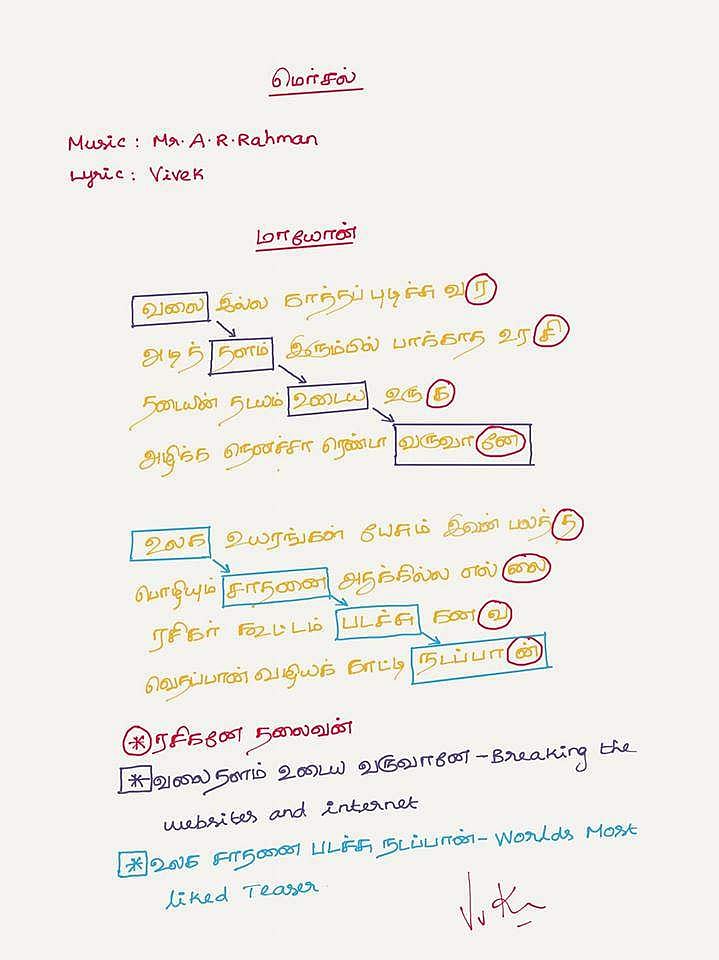 மெர்சல்
Music : Mr. A.R.Rahman
Lyric : Vivek
மாயோன்
வலை இல்ல காத்தப் புடிச்சு வர
அடித் தளம் இரும்பில் பாக்காத உரசி
நடையின் நடயம் உடைய உருக
அழிக்க நெனச்சா ரெண்டா வருவானே
உலக உயரங்கள் பேசும் இவன் பலத்த
பொழியும் சாதனை அதுக்கில்ல எல்லை
ரசிகர் கூட்டம் படச்சு கனவ
வெதப்பான் வழியக் காட்டி நடப்பான்
* ரசிகனே தலைவன்
* வலைதளம் உடைய வருவானே - Breaking the
websites and internet
* உலக சாதனை படச்சு நடப்பான் - Worlds Most
liked Teaser